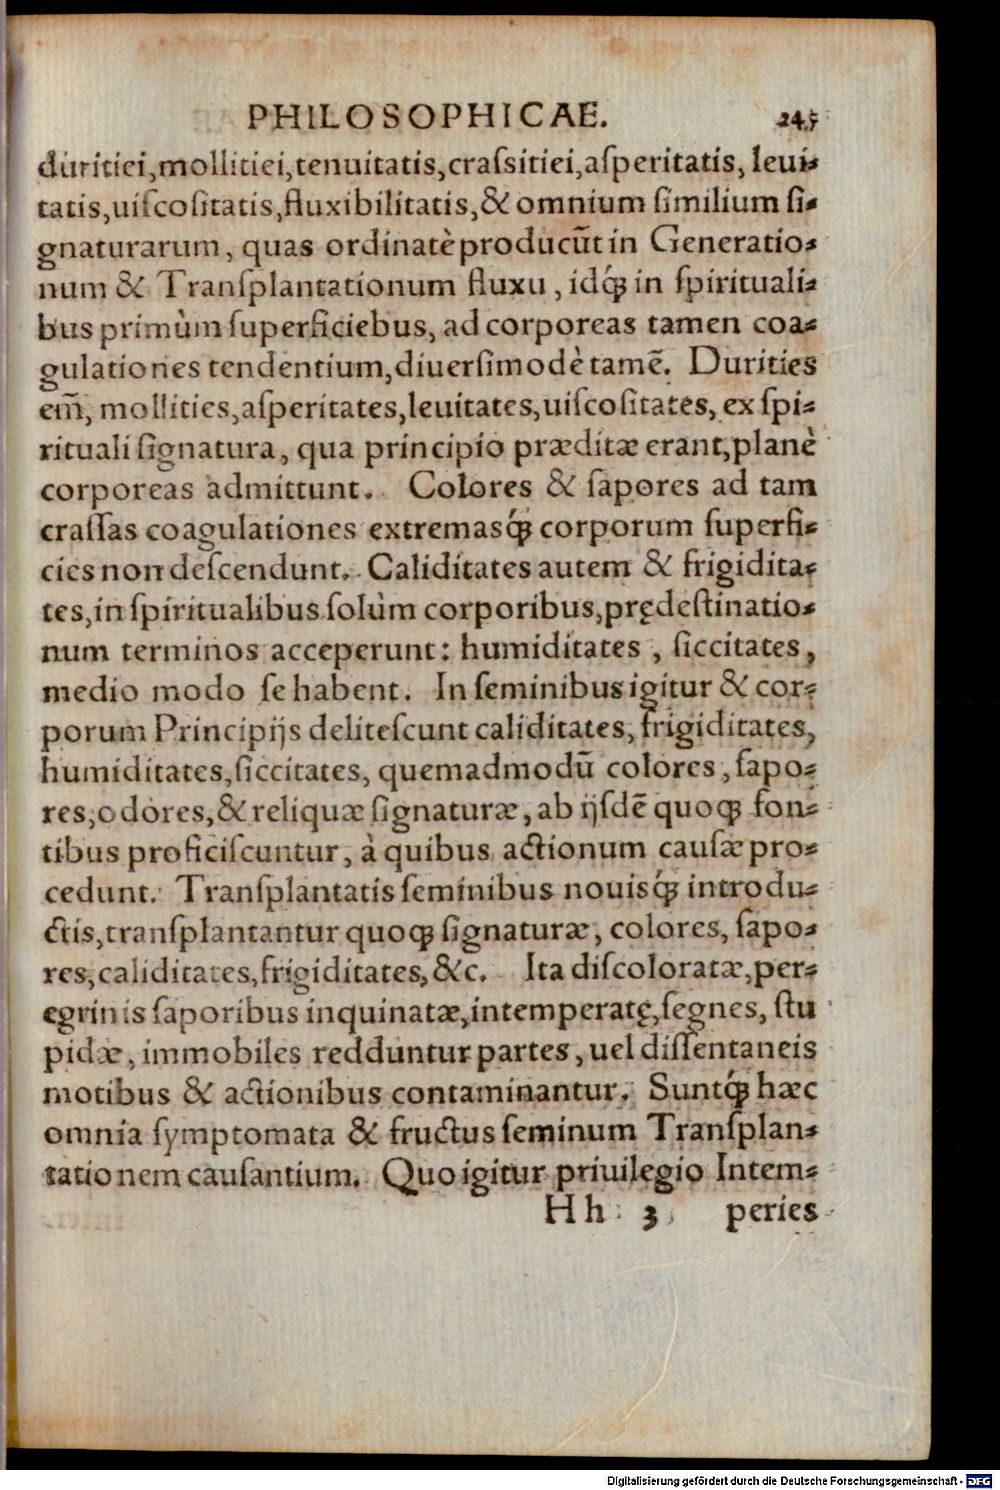 PHILOSOPHICAE. 245
duritiei,mollitiei,tenuitatis,craſsitiei,aſperitatis, leui⸗
tatis,uiſcoſitatis,fluxibilitatis,& omnium ſimilium ſi⸗
gnaturarum, quas ordinatè producũt in Generatio⸗
num & Tranſplantationum fluxu, idq́ꝫ in ſpirituali⸗
bus primùm ſuperficiebus, ad corporeas tamen coa⸗
gulationes tendentium,diuerſimodè tamẽ. Durities
em̃, mollities,aſperitates,leuitates,uiſcoſitates, ex ſpi⸗
rituali ſignatura, qua principio præditæ erant,planè
corporeas admittunt. Colores & ſapores ad tam
craſſas coagulationes extremasq́ꝫ corporum ſuperfi⸗
cies non deſcendunt. Caliditates autem & frigidita⸗
tes,in ſpiritualibus ſolùm corporibus,prędeſtinatio⸗
num terminos acceperunt: humiditates, ſiccitates,
medio modo ſe habent. In ſeminibus igitur & cor⸗
porum Principijs deliteſcunt caliditates, frigiditates,
humiditates,ſiccitates, quemadmodũ colores, ſapo⸗
res,odores,& reliquæ ſignaturæ, ab ijſdẽ quoqꝫ fon⸗
tibus proficiſcuntur, à quibus actionum cauſæ pro⸗
cedunt. Tranſplantatis ſeminibus nouisq́ꝫ introdu⸗
ctis,tranſplantantur quoqꝫ ſignaturæ, colores, ſapo⸗
res,caliditates,frigiditates,&c. Ita diſcoloratæ,per⸗
egrinis ſaporibus inquinatæ,intemperatę,ſegnes, ſtu
pidæ, immobiles redduntur partes, uel diſſentaneis
motibus & actionibus contaminantur. Suntq́ꝫ hæc
omnia ſymptomata & fructus ſeminum Tranſplan⸗
tationem cauſantium. Quo igitur priuilegio Intem⸗
Hh 3 peries
Digitalisierung gefördert durch die Deutsche Forschungsgemeinschaft - DFG